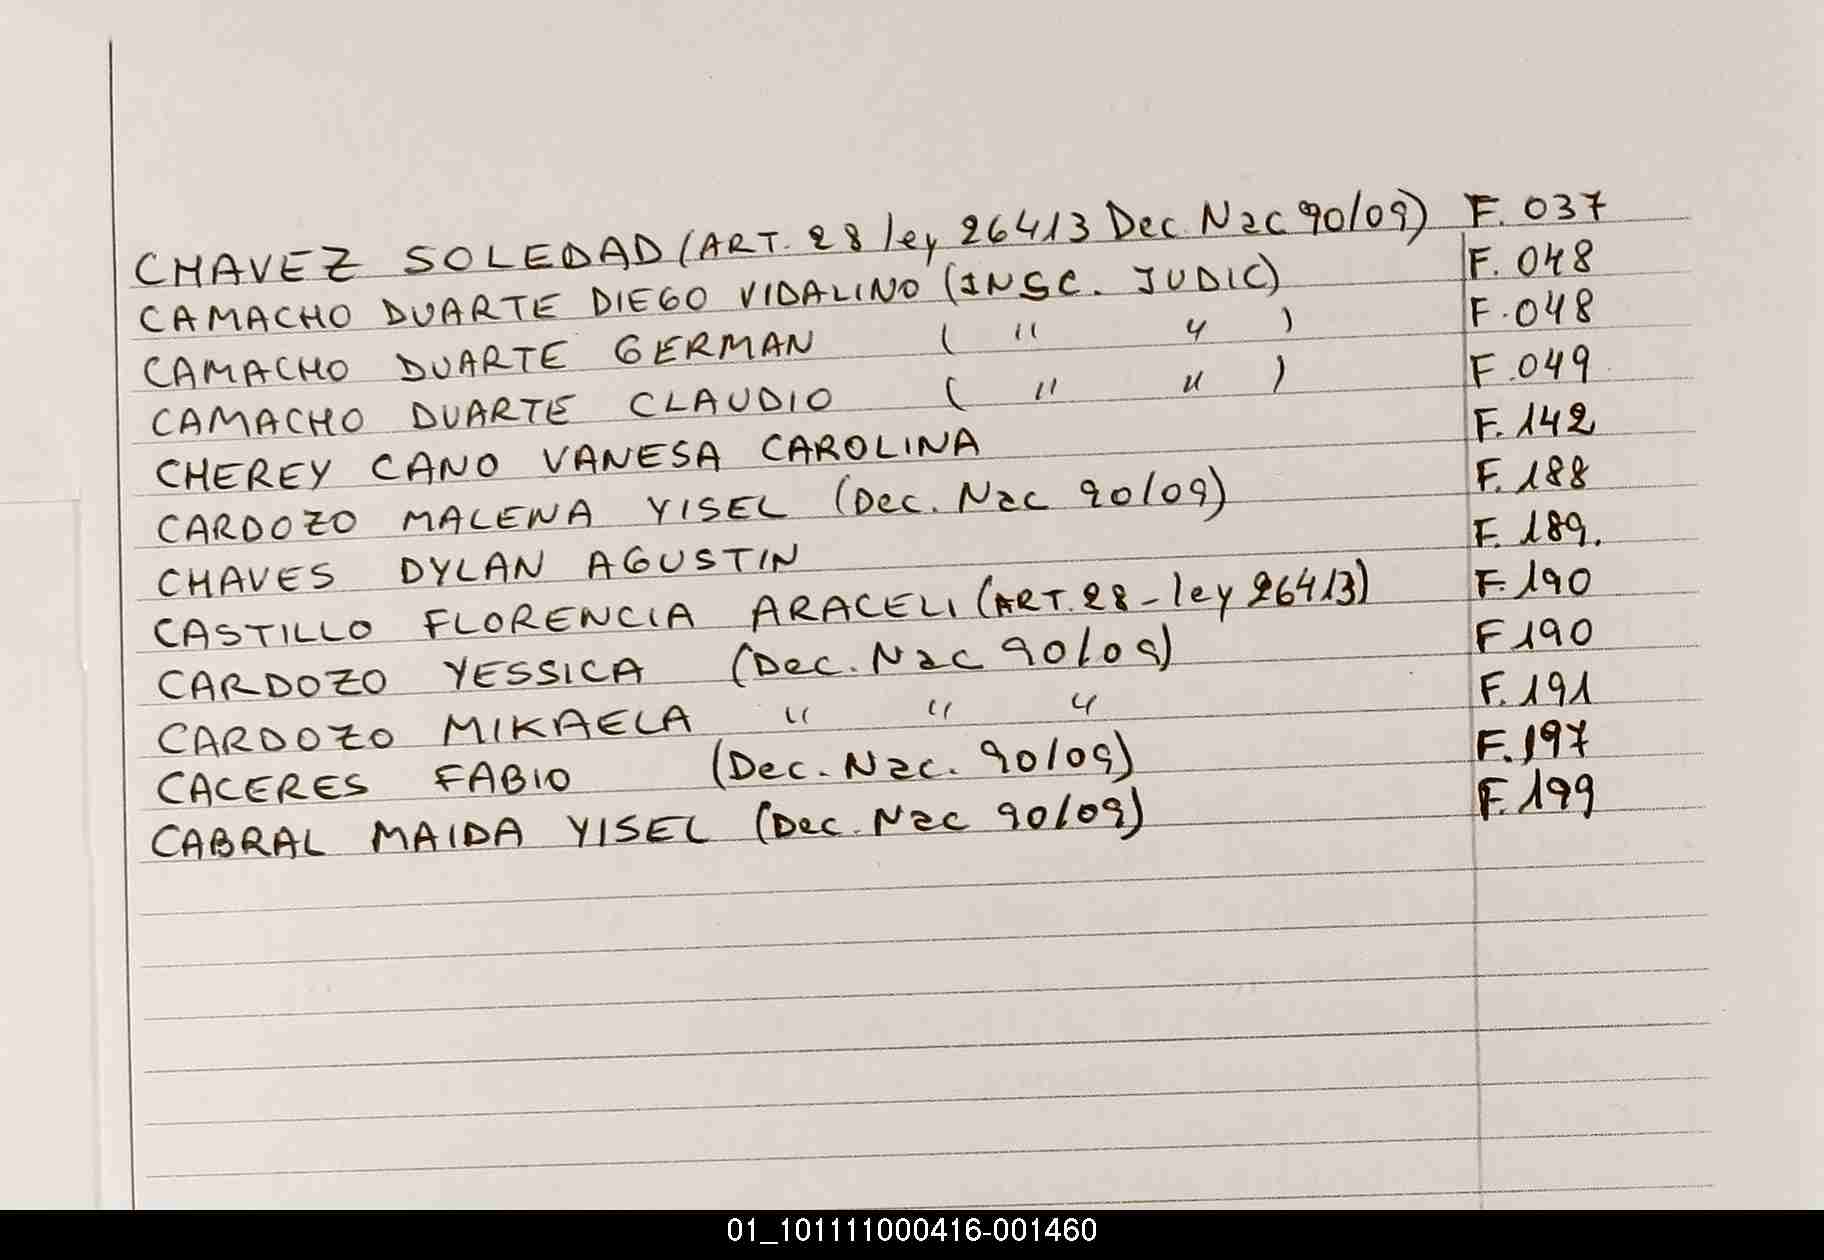 CHAVEZ SOLEDAD (ART. 28 ley 26413 Dec. Nac 90/09) F. 037
CAMACHO DUARTE DIEGO VIDALINO (INSC. JUDIC) F. 048
CAMACHO DUARTE GERMAN ( " " ) F. 048
CAMACHO DUARTE CLAUDIO ( " " ) F. 049
CHEREY CANO VANESA CAROLINA F. 142
CARDOZO MALENA YISEL (Dec. Nac 90/09) F. 188
CHAVES DYLAN AGUSTIN F. 189.
CASTILLO FLORENCIA ARACELI (ART. 28 - ley 26413) F. 190
CARDOZO YESSICA (Dec. Nac 90/09) F 190
CARDOZO MIKAELA " " " F. 191
CACERES FABIO (Dec. Nac. 90/09) F. 197
CABRAL MAIDA YISEL (Dec. Nac 90/09) F. 199
01_101111000416-001460